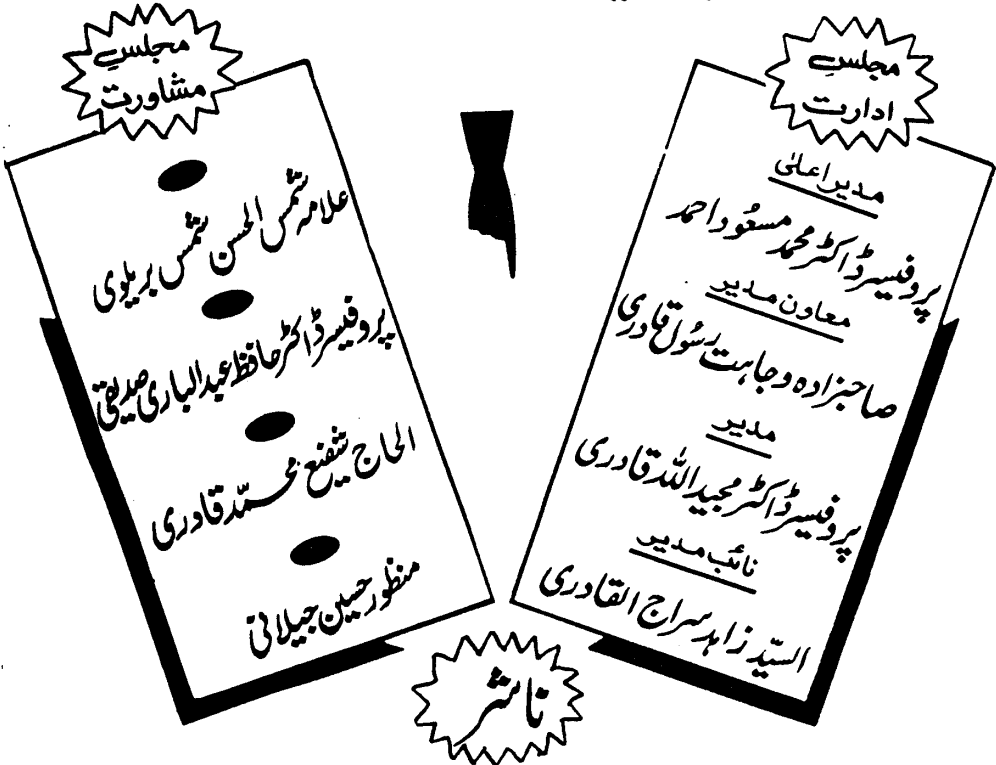 مجلسِ
ادارت
مدیر اعلیٰ
پروفیسر ڈاکٹر محمد مسعود احمد
معاون مدیر
صاحبزادہ وجاہت رسُول قادری
مدیر
پروفیسر ڈاکٹر مجید اللہ قادری
نائب مدیر
السیّد زاہد سراج القادری
مجلسِ
مشاورت
علامہ شمس الحسن شمس بریلوی
پروفیسر ڈاکٹر حافظ عبد الباری صدیقی
الحاج شفیع محمّد قادری
منظور حسین جیلانی
ناشر